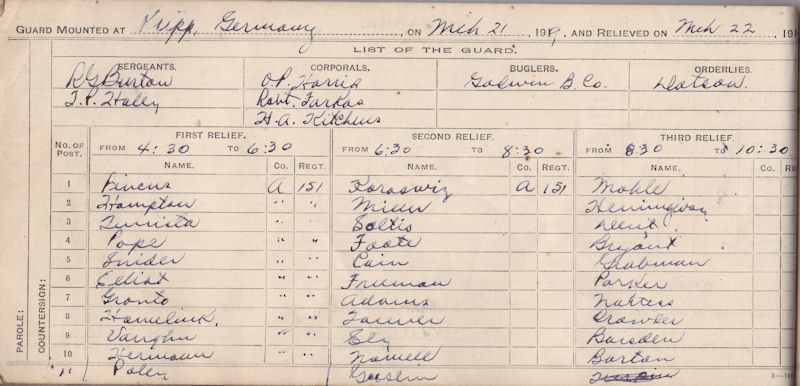 GUARD MOUNTED AT Kripp, Germany, ON Mch 21 1919, AND RELIEVED ON Mch 22 191
LIST OF THE GUARD.
SERGEANTS. CORPORALS. BUGLERS. ORDERLIES.
R.G. Burton O.P. Harris Godwin B. Co. Dotson.
T.P. Haley Robt. Farkas
H.A. Kitchens
No. OF POST. FIRST RELIEF. SECOND RELIEF. THIRD RELIEF.
FROM 4:30 TO 6:30 FROM 6:30 TO 8:30 FROM 8:30 TO 10:30
NAME. Co. REGT. NAME. Co. REGT. NAME.
1 Pincus A 151 A 151 Mohle
2 Hampton " " Hemingway
3 " " Soltis Dent
4 Pope " " Foote Bryant
5 Snider " " Cain Grabman
6 Elliot " " Freeman Parker
7 Gronto " " Adams
8 Hamelink " " Tanner Crowder
9 Vaughn " " Ely Barsden
10 Hermann " " Nowell Barton
11 Poley Goslin
PAROLE:
COUNTERSIGN: